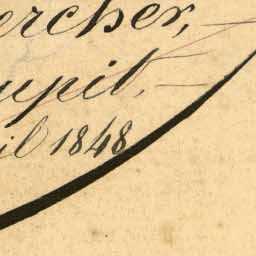 ercher,
upit.
il 1848